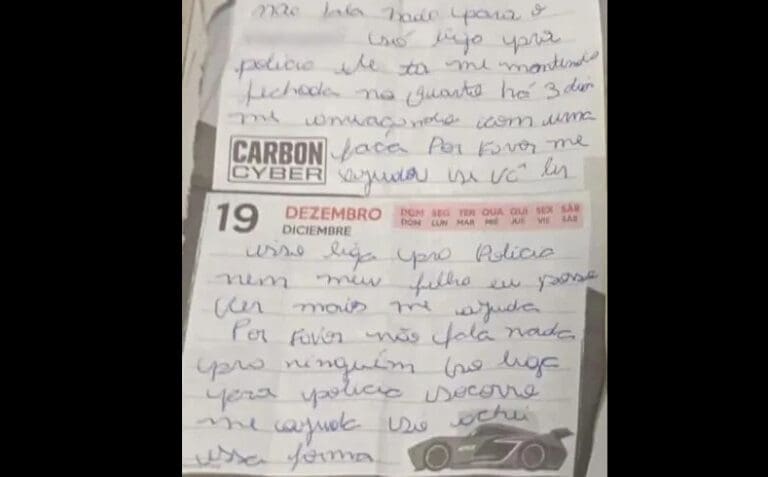 não fala nada para o
só liga pra
policia ele ta me mantendo
fechada no quarto há 3 dia
me ameaçando com uma
CARBON faca Por Favor me
CYBER ajuda se vc ler
19 DEZEMBRO DOM SEG TER QUA QUI SEX SAB
DICIEMBRE DOM LUN MAR MIÉ JUE VIE SAB
isso liga pra Policia
nem meu filho eu posso
ver mais me ajuda
Por Favor não fala nada
pra ninguém só liga
pra policia socorro
me ajuda só achei
essa forma